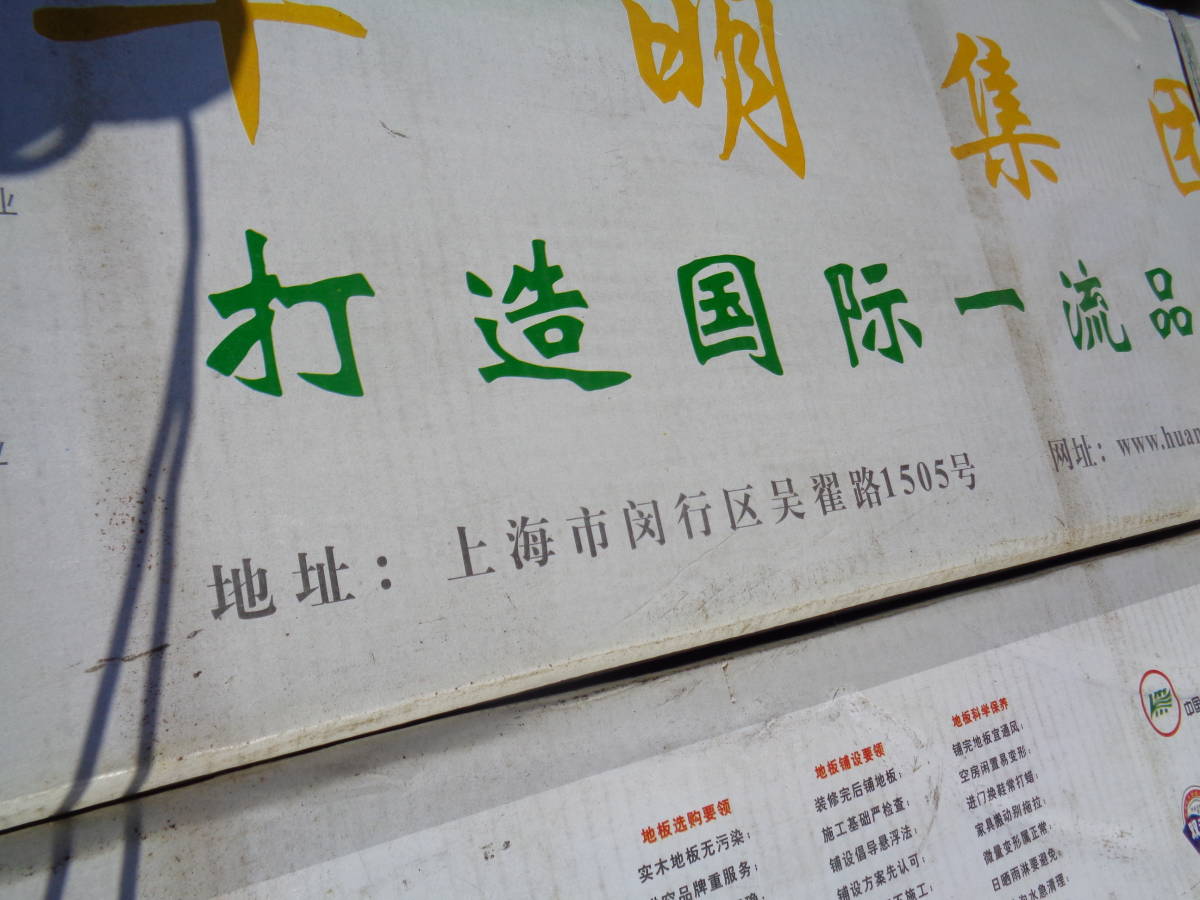 明集团
打造国际一流品
地址：上海市闵行区吴翟路1505号
网址：www.huan
业
地板选购要领
实木地板无污染；
品牌重服务；
地板铺设要领
装修完后铺地板；
施工基础严检查；
铺设倡导悬浮法；
铺设方案先认可；
施工；
地板科学保养
铺完地板宜通风；
空房闲置易变形；
进门换鞋常打蜡；
家具搬动别拖拉；
微量变形属正常；
日晒雨淋要避免。
水急清理；
中国